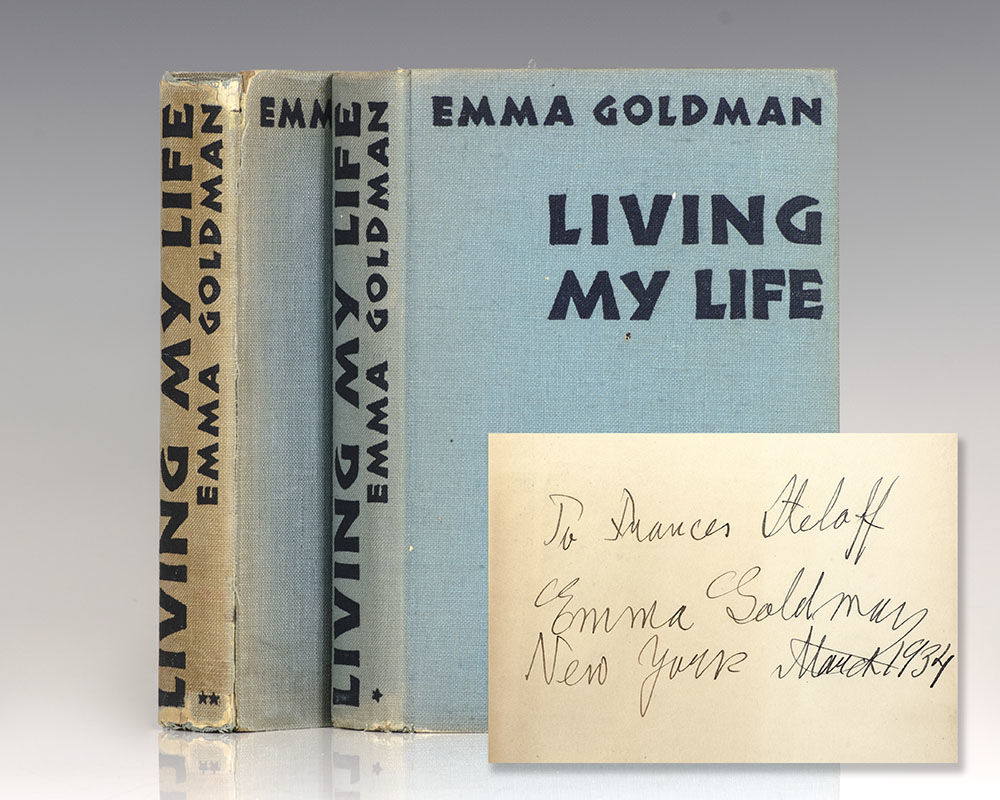 LIVING MY LIFE
EMMA GOLDMAN
**
EMM
LIVING MY LIFE
EMMA GOLDMAN
*
EMMA GOLDMAN
LIVING
MY LIFE
To Frances Steloff
Emma Goldman
New York March 1934